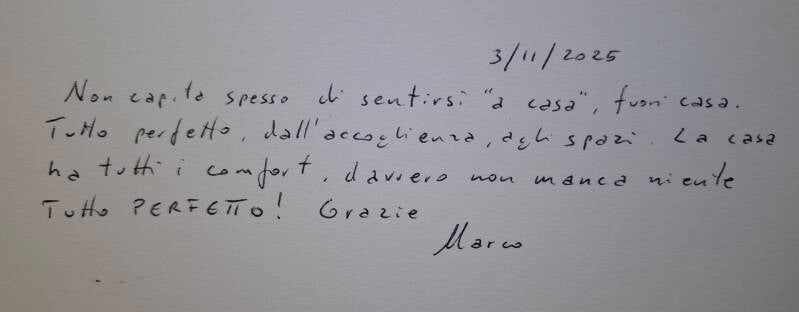 3/11/2025
Non capita spesso di sentirsi "a casa", fuori casa.
Tutto perfetto, dall'accoglienza, agli spazi. La casa
ha tutti i comfort, davvero non manca niente
Tutto PERFETTO! Grazie
Marco